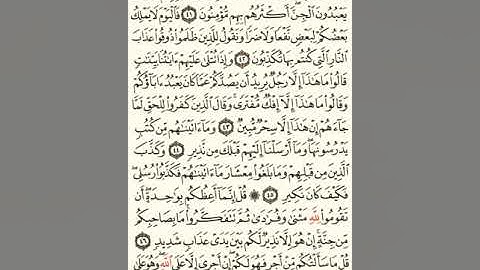 يَعْبُدُونَ ٱلْجِنَّ أَكْثَرُهُم بِهِم مُّؤْمِنُونَ ٤١ فَٱلْيَوْمَ لَا يَمْلِكُ
بَعْضُكُمْ لِبَعْضٍ نَّفْعًا وَلَا ضَرًّا وَنَقُولُ لِلَّذِينَ ظَلَمُوا۟ ذُوقُوا۟ عَذَابَ
ٱلنَّارِ ٱلَّتِى كُنتُم بِهَا تُكَذِّبُونَ ٤٢ وَإِذَا تُتْلَىٰ عَلَيْهِمْ ءَايَٰتُنَا بَيِّنَٰتٍ
قَالُوا۟ مَا هَٰذَآ إِلَّا رَجُلٌ يُرِيدُ أَن يَصُدَّكُمْ عَمَّا كَانَ يَعْبُدُ ءَابَآؤُكُمْ
وَقَالُوا۟ مَا هَٰذَآ إِلَّآ إِفْكٌ مُّفْتَرًى وَقَالَ ٱلَّذِينَ كَفَرُوا۟ لِلْحَقِّ لَمَّا
جَآءَهُمْ إِنْ هَٰذَآ إِلَّا سِحْرٌ مُّبِينٌ ٤٣ وَمَآ ءَاتَيْنَٰهُم مِّن كُتُبٍ
يَدْرُسُونَهَا وَمَآ أَرْسَلْنَآ إِلَيْهِمْ قَبْلَكَ مِن نَّذِيرٍ ٤٤ وَكَذَّبَ
ٱلَّذِينَ مِن قَبْلِهِمْ وَمَا بَلَغُوا۟ مِعْشَارَ مَآ ءَاتَيْنَٰهُمْ فَكَذَّبُوا۟ رُسُلِى
فَكَيْفَ كَانَ نَكِيرِ ٤٥ ۞ قُلْ إِنَّمَآ أَعِظُكُم بِوَٰحِدَةٍ أَن
تَقُومُوا۟ لِلَّهِ مَثْنَىٰ وَفُرَٰدَىٰ ثُمَّ تَتَفَكَّرُوا۟ مَا بِصَاحِبِكُم
مِّن جِنَّةٍ إِنْ هُوَ إِلَّا نَذِيرٌ لَّكُم بَيْنَ يَدَىْ عَذَابٍ شَدِيدٍ ٤٦
قُلْ مَا سَأَلْتُكُم مِّنْ أَجْرٍ فَهُوَ لَكُمْ إِنْ أَجْرِىَ إِلَّا عَلَى ٱللَّهِ وَهُوَ عَلَىٰ